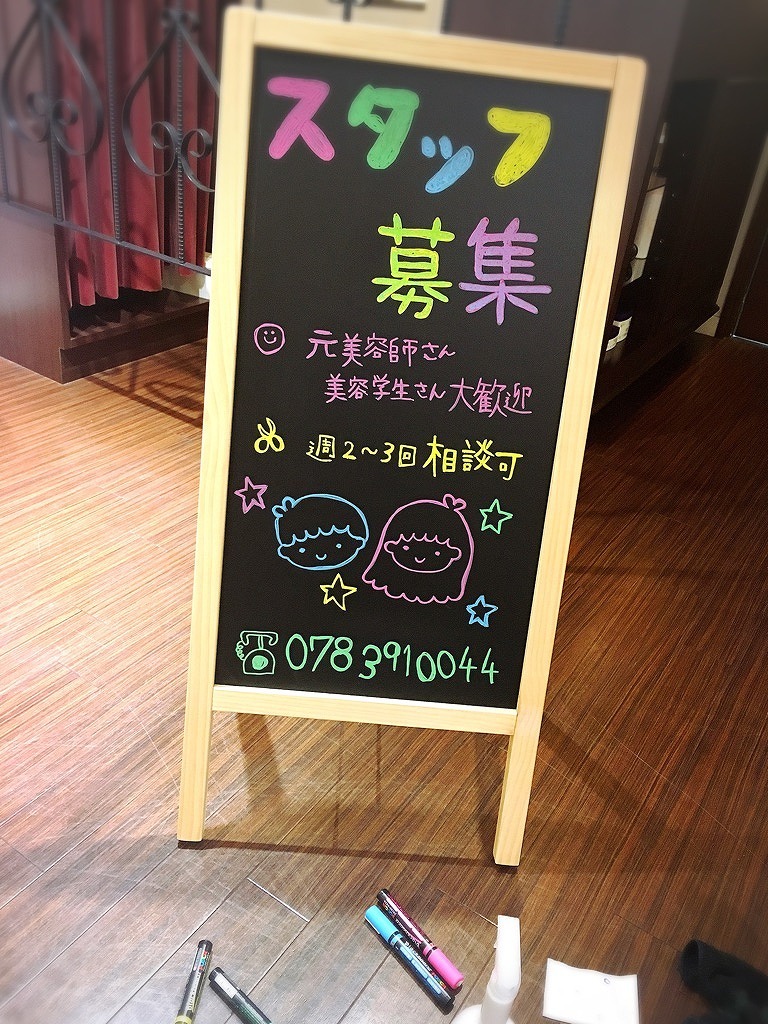 スタッフ
募集
元美容師さん
美容学生さん大歓迎
週2〜3回相談可
0783910044